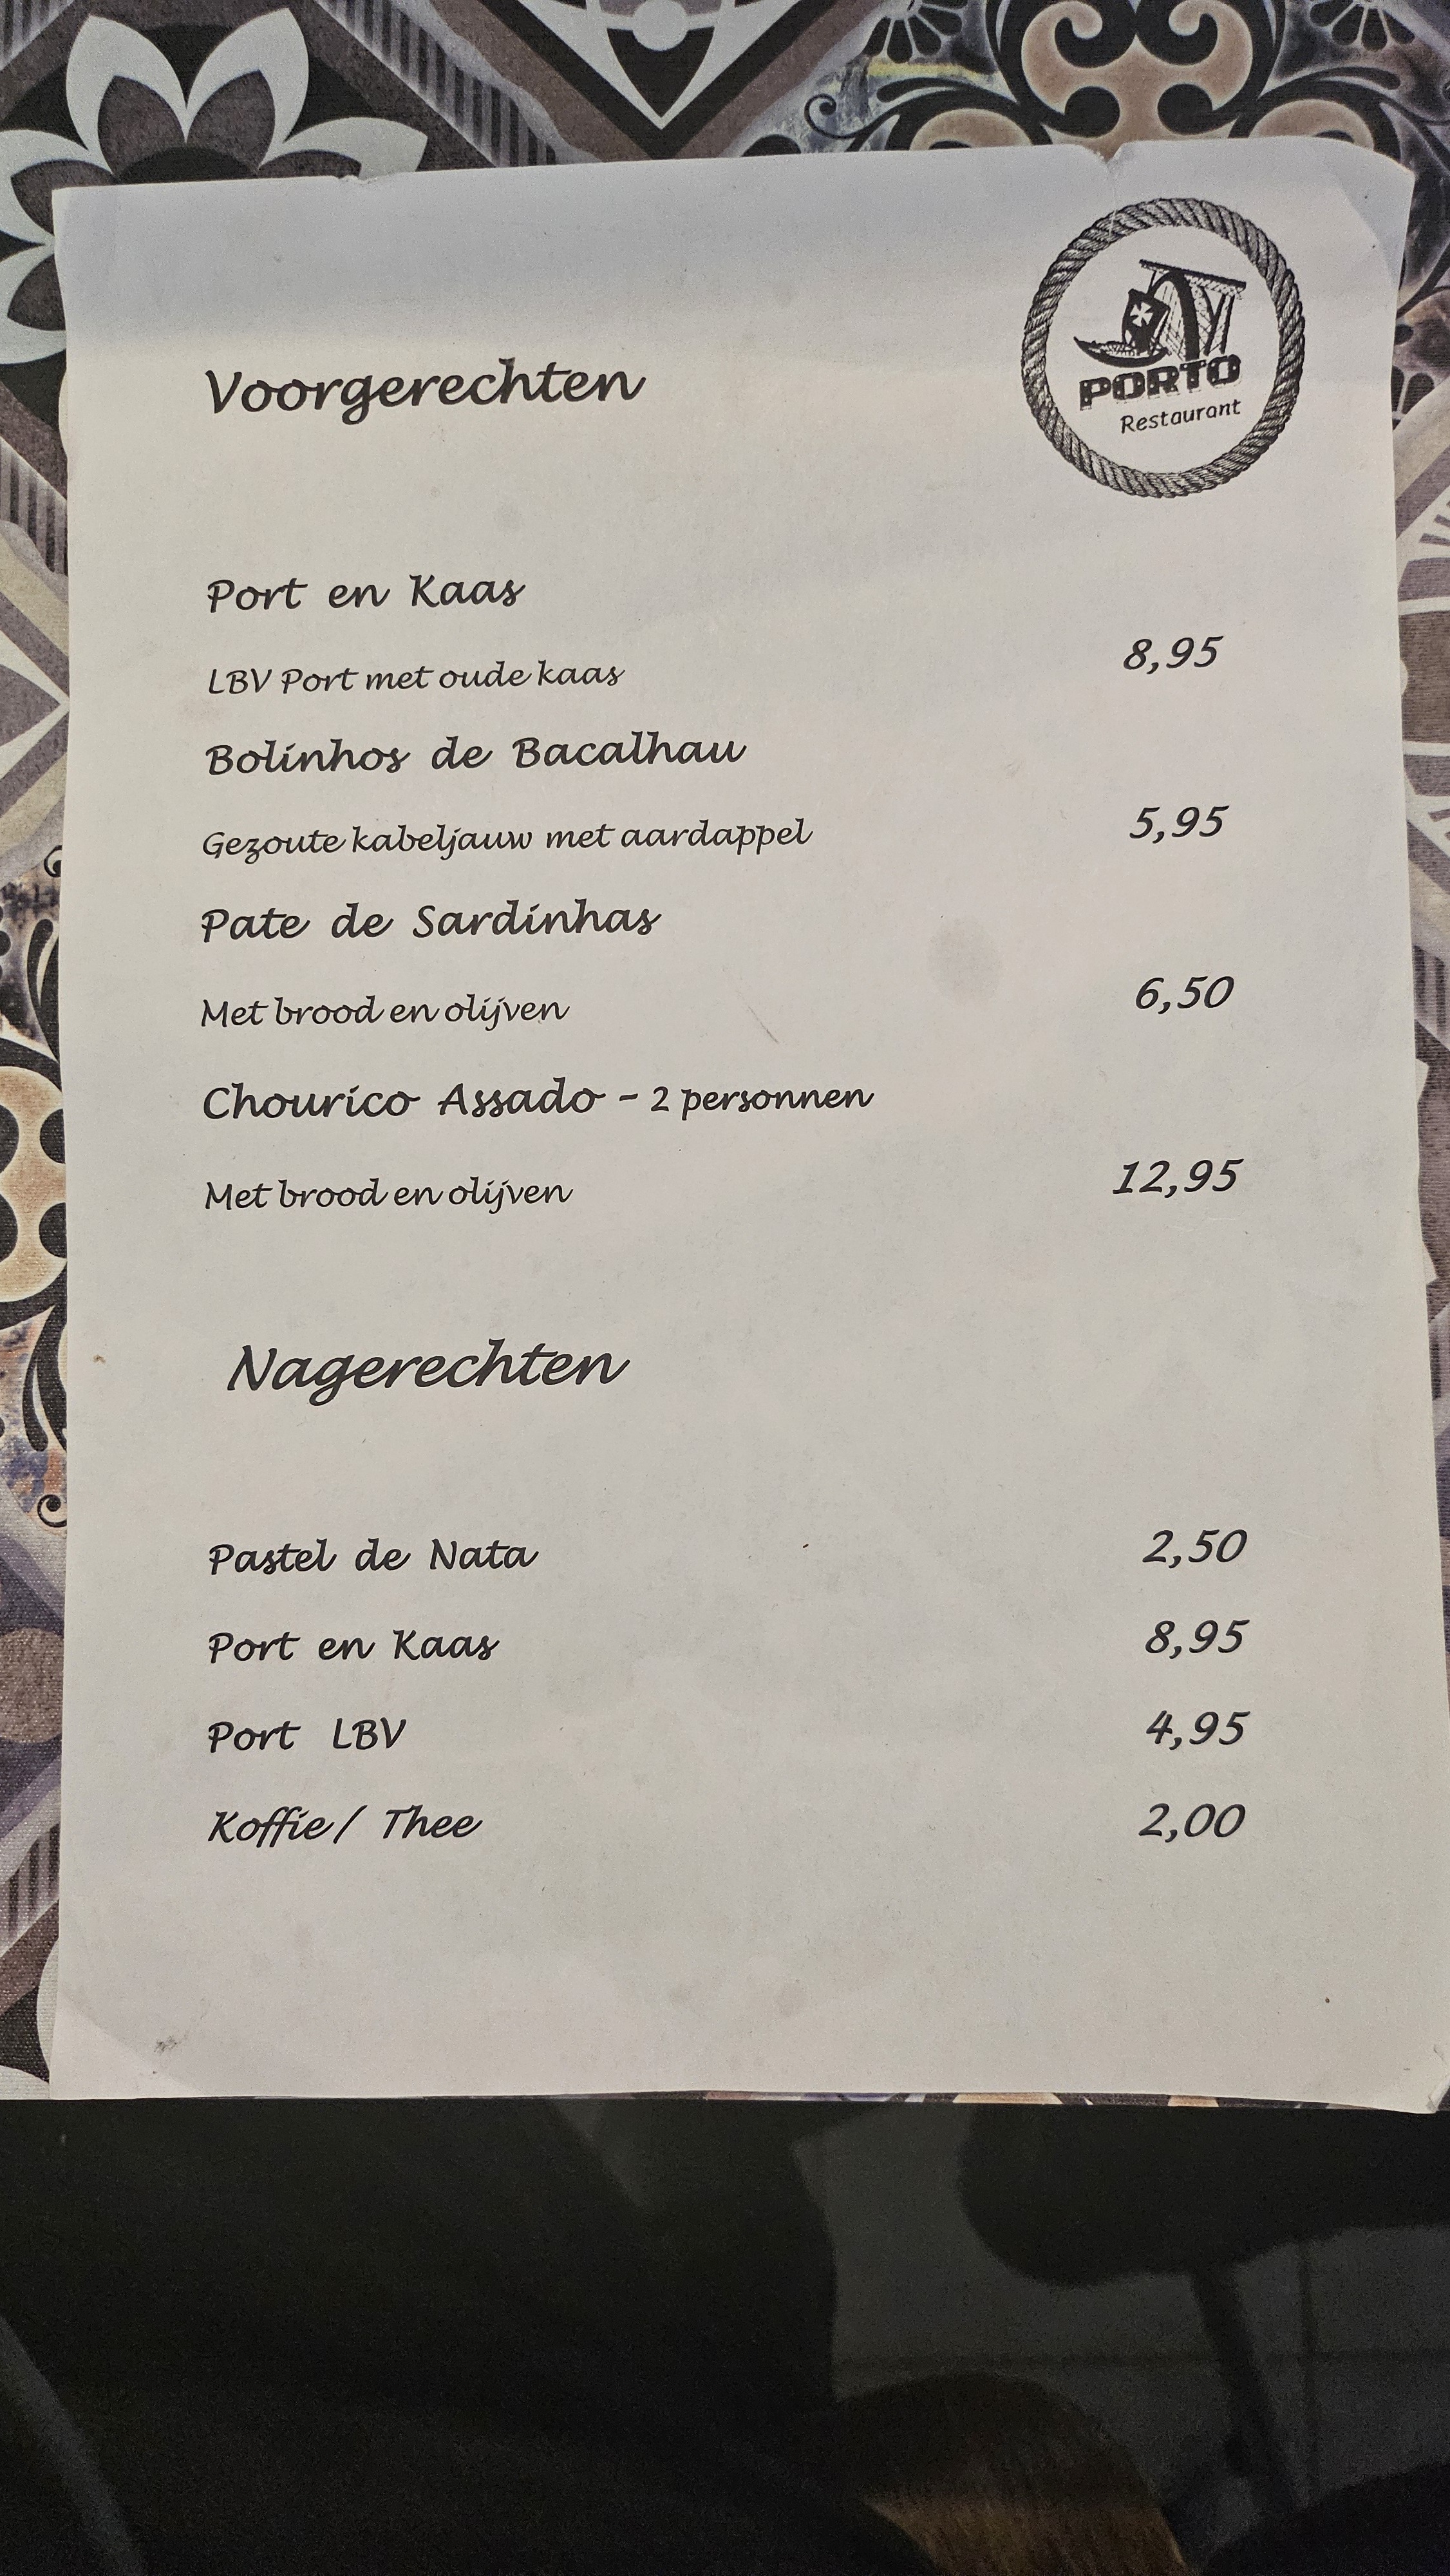 PORTO
Restaurant
Voorgerechten
Port en Kaas
LBV Port met oude kaas 8,95
Bolinhos de Bacalhau
Gezoute kabeljauw met aardappel 5,95
Pate de Sardinhas
Met brood en olijven 6,50
Chourico Assado - 2 personnen
Met brood en olijven 12,95
Nagerechten
Pastel de Nata 2,50
Port en Kaas 8,95
Port LBV 4,95
Koffie/ Thee 2,00